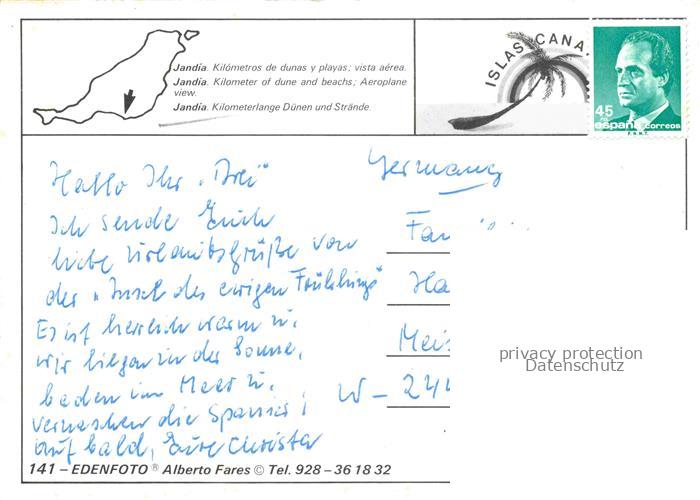 Jandía. Kilómetros de dunas y playas; vista aérea.
Jandía. Kilometer of dune and beachs; Aeroplane
view.
Jandía. Kilometerlange Dünen und Strände.
ISLAS CANA.
45
españa correos
F.N.M.T.
Hallo Ihr „Drei“
Ich sende Euch
liebe Urlaubsgrüße von
der „Insel des ewigen Frühlings“
Es ist herrlich warm u.
wir liegen in der Sonne,
baden im Meer u.
vernaschen die Spanier;
auf bald, Eure Christa
Germany
Fam
Ha
Mei
W - 244
privacy protection
Datenschutz
141 – EDENFOTO ® Alberto Fares © Tel. 928 – 36 18 32